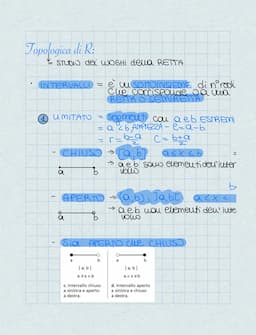 Topologica di R:
↳ STUDIO dei LUOGHI della RETTA
• INTERVALLI = è un SOTTOINSIEME di n° reali
CHE CORRISPONDE a una
RETTA O SEMIRETTA
① LIMITATO = SEGMENTI con a e b ESTREMI
= a<b AMPIEZZA -
= r = b-a/2 C = b+a/2
- CHIUSO → [a,b] a≤x≤b
→ a e b sono elementi dell'inter
vallo
a b
- APERTO → (a,b), ]a,b[ a<x<
→ a e b non elementi dell'inte
vallo
a b
- SIA APERTO CHE CHIUSO
a b a b
[a; b[ ]a; b]
a ≤ x < b a < x ≤ b
c. Intervallo chiuso d. Intervallo aperto
a sinistra e aperto a sinistra e chiuso
a destra. a destra.